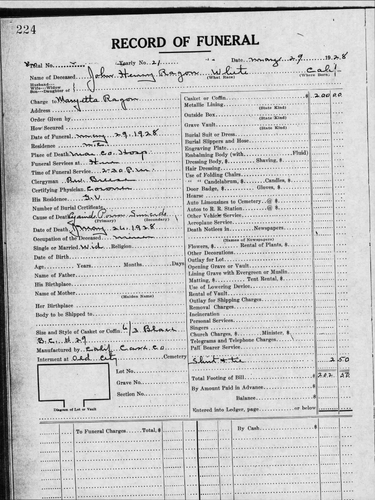 224
RECORD OF FUNERAL
Total No. Yearly No. 21 Date May 29 1928
Name of Deceased John Henry Ragon White Cal
(What Race) (Where Born)
Husband—
Wife—Widow
Son—Daughter of
Charge to Maryetta Ragon
Address
Order Given by
How Secured
Date of Funeral May 29, 1928
Residence
Place of Death Mar. Co. Hosp.
Funeral Services at Here
Time of Funeral Service 2:30 P.M.
Clergyman Rev.
Certifying Physician Coroner
His Residence
Number of Burial Certificate
Cause of Death Suicide
(Primary) (Secondary)
Date of Death May 26 1928
Occupation of the Deceased
Single or Married Wid. Religion
Date of Birth
Age Years Months Days
Name of Father
His Birthplace
Name of Mother
(Maiden Name)
Her Birthplace
Body to be Shipped to
Size and Style of Casket or Coffin 6/3 Black
B.C. #29
Manufactured by Calif. Cask. Co.
Interment at Old City Cemetery
Lot No.
Grave No.
Section No.
Diagram of Lot or Vault
Casket or Coffin $ 200 00
Metallic Lining
(State Kind)
Outside Box
(State Kind)
Grave Vault
(State Kind)
Burial Suit or Dress
Burial Slippers and Hose
Engraving Plate
Embalming Body (with Fluid)
Dressing Body, $ Shaving, $
Hair Dressing
Use of Folding Chairs
" " Candelabrum, $ Candles, $
Door Badge, $ Gloves, $
Hearse
Auto Limousines to Cemetery @ $
Autos to R. R. Station @ $
Other Vehicle Service
Aeroplane Service
Death Notices in Newspapers
(Names of Newspapers)
Flowers, $ Rental of Plants, $
Other Decorations
Outlay for Lot
Opening Grave or Vault
Lining Grave with Evergreen or Muslin
Matting, $ Tent Rental, $
Use of Lowering Device
Rental of Vault
Outlay for Shipping Charges
Removal Charges
Incineration
Personal Services
Singers
Church Charges, $ Minister, $
Telegrams and Telephone Charges
Pall Bearer Service
Shirt & tie 2 50
Total Footing of Bill $ 202 50
By Amount Paid in Advance $
Balance $
Entered into Ledger, page or below
To Funeral Charges Total, $
By Cash $